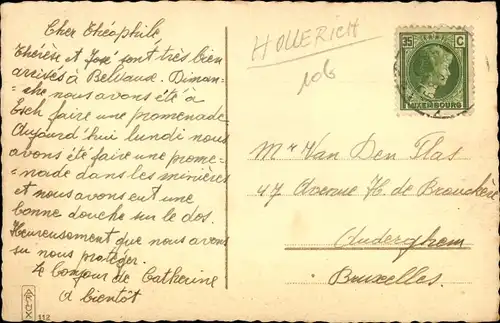 Cher Théophile,
Thérèse et José sont très bien
arrivés à Belvaux. Diman-
che nous avons été à
Esch faire une promenade
Aujourd'hui lundi nous
avons été faire une prome-
nade dans les minières
et nous avons eut une
bonne douche sur le dos.
Heureusement que nous avons
su nous protéger.
Le bonjour de Catherine
A bientôt
112
HOLLERICH
106
35 C
LUXEMBOURG
Mr Van Den Plas
47 Avenue H. de Brouckère
Auderghem
Bruxelles.